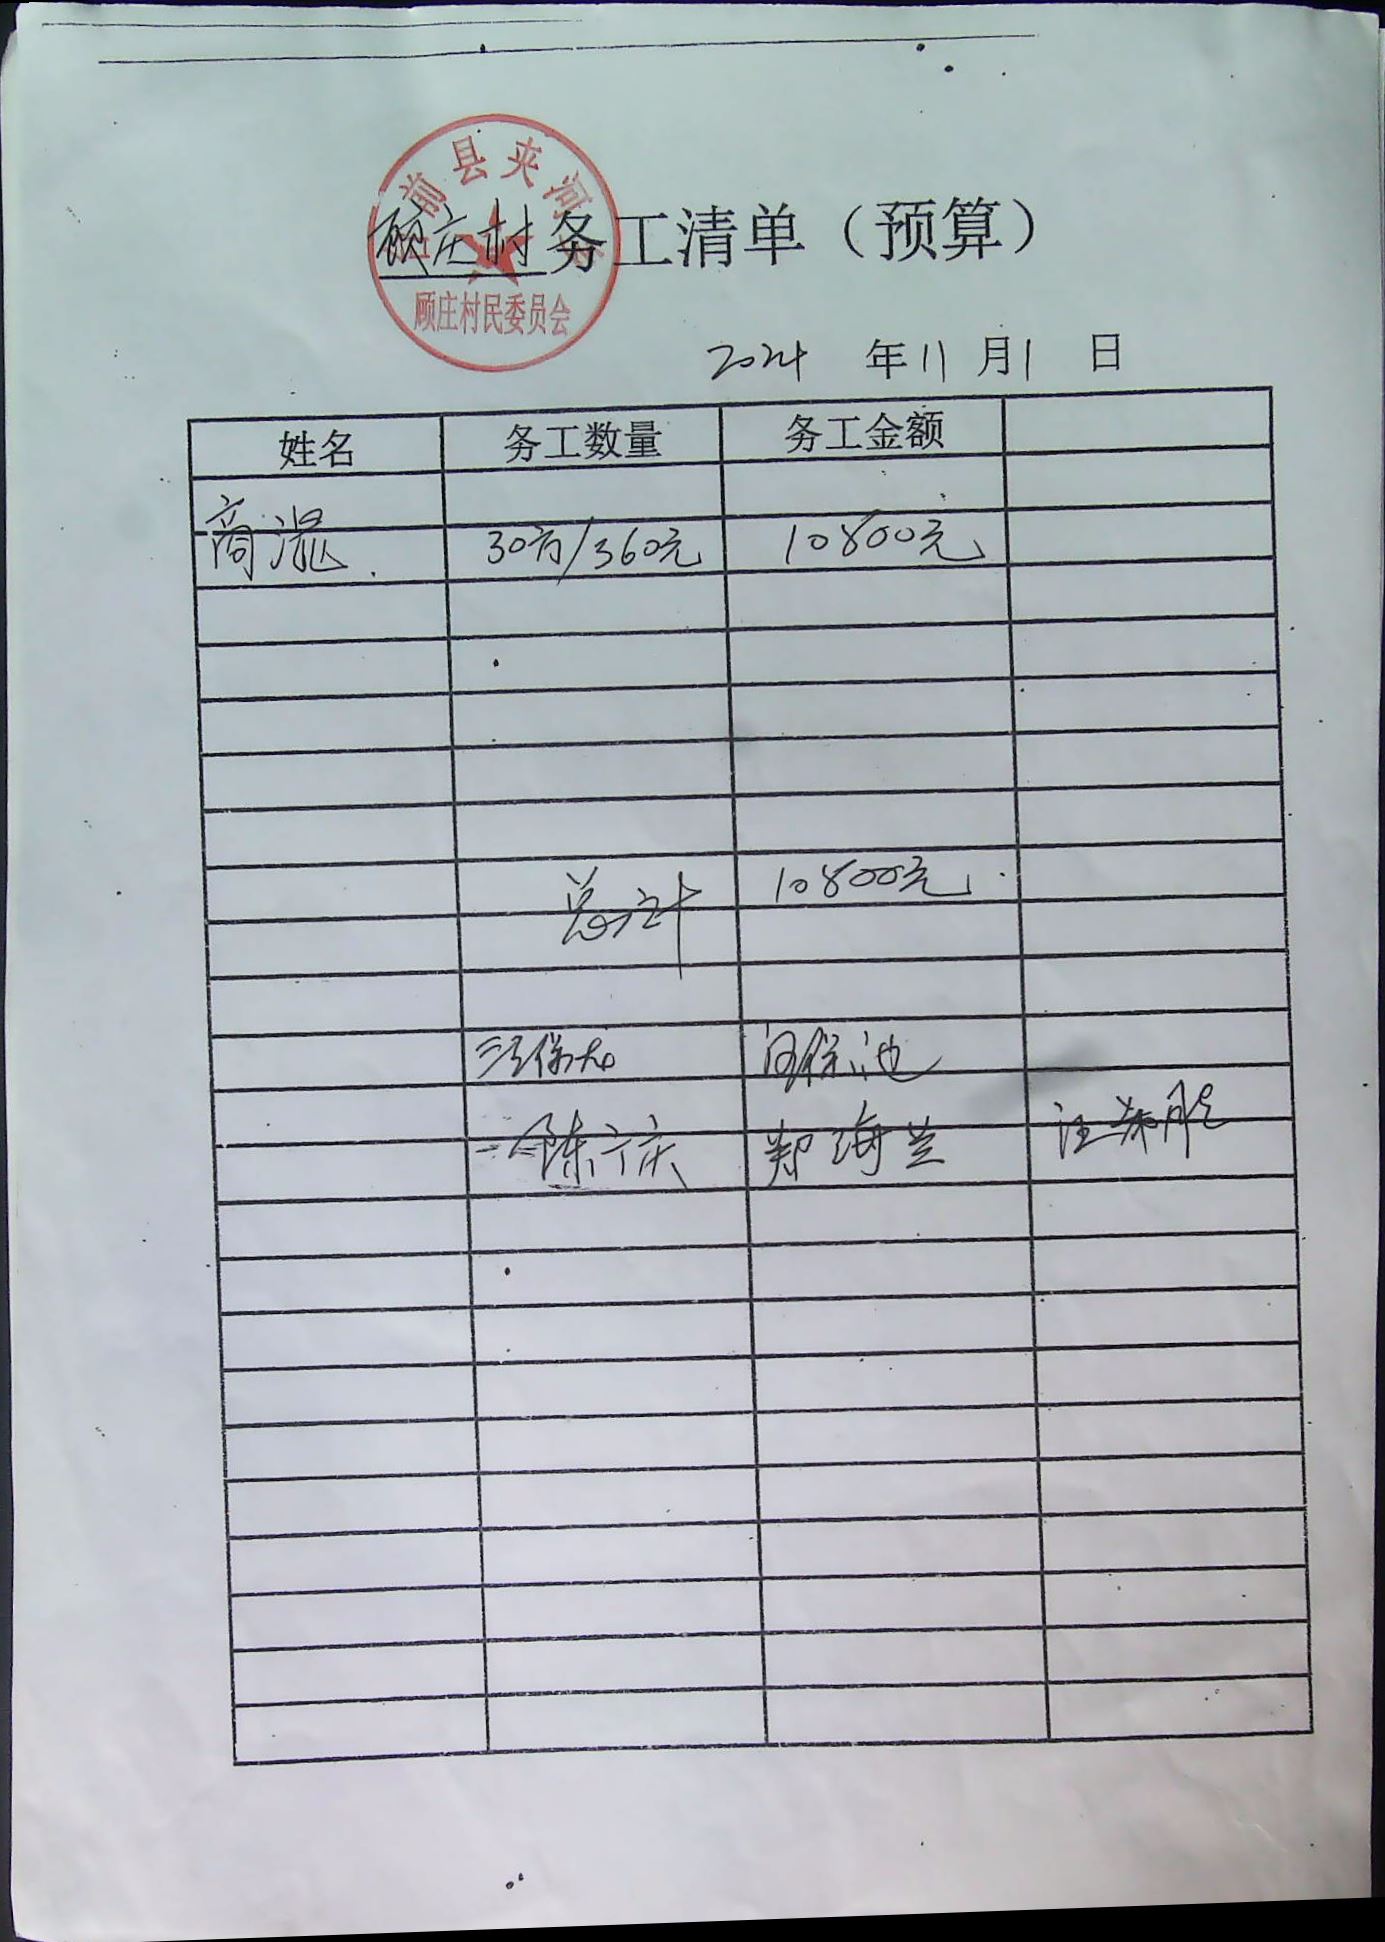 前县夹河
顾庄村民委员会
顾庄村务工清单（预算）
2024年11月1日
姓名 务工数量 务工金额
商混 30方/360元 10800元
总计 10800元
陈广庆 郑海兰